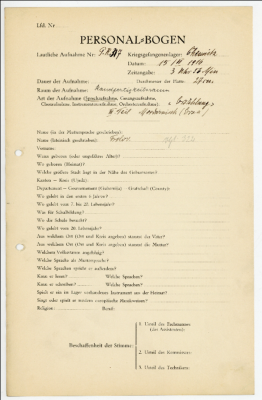 Lfd. Nr.
PERSONAL-BOGEN
Lautliche Aufnahme Nr.: P.K. 217 Kriegsgefangenenlager: Chemnitz
Datum: 15 IV 1916
Zeitangabe: 3 Uhr
Dauer der Aufnahme: Durchmesser der Platte:
Raum der Aufnahme:
Art der Aufnahme (Sprechaufnahme, Gesangsaufnahme,
Choraufnahme, Instrumentenaufnahme, Orchesteraufnahme): Erzählung
Name (in der Muttersprache geschrieben):
Name (lateinisch geschrieben):
Vorname:
Wann geboren (oder ungefähres Alter)?
Wo geboren (Heimat)?
Welche größere Stadt liegt in der Nähe des Geburtsortes?
Kanton — Kreis (Ujedz):
Departement — Gouvernement (Gubernija) — Grafschaft (County):
Wo gelebt in den ersten 6 Jahren?
Wo gelebt vom 7. bis 20. Lebensjahr?
Was für Schulbildung?
Wo die Schule besucht?
Wo gelebt vom 20. Lebensjahr?
Aus welchem Ort (Ort und Kreis angeben) stammt der Vater?
Aus welchem Ort (Ort und Kreis angeben) stammt die Mutter?
Welchem Volksstamm angehörig?
Welche Sprache als Muttersprache?
Welche Sprachen spricht er außerdem?
Kann er lesen? Welche Sprachen?
Kann er schreiben? Welche Sprachen?
Spielt er ein im Lager vorhandenes Instrument aus der Heimat?
Singt oder spielt er moderne europäische Musikweisen?
Religion: Beruf:
Beschaffenheit der Stimme:
1. Urteil des Fachmannes
(des Assistenten):
2. Urteil des Kommissars:
3. Urteil des Technikers: